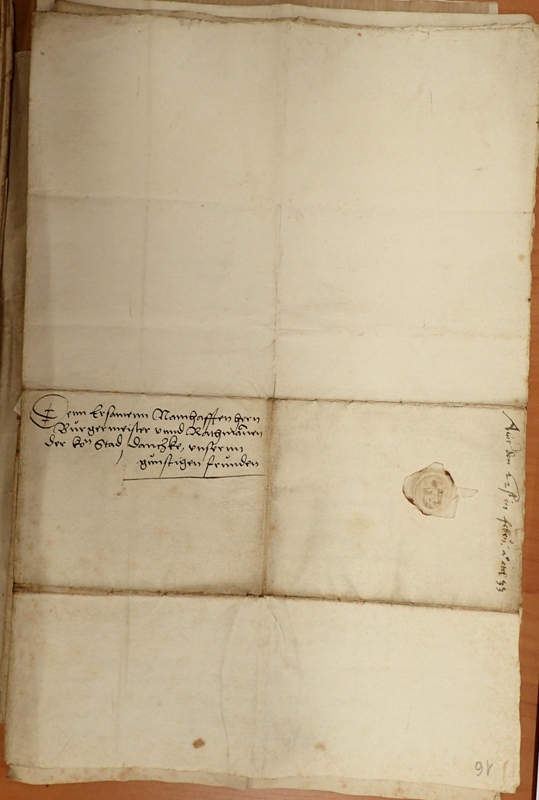 Denn Ersamenn Namhafften hern
Burgermeister vnnd Rathmannen
der kon Stad danczke, vnsernn
gunstigen frunden
Aus den in